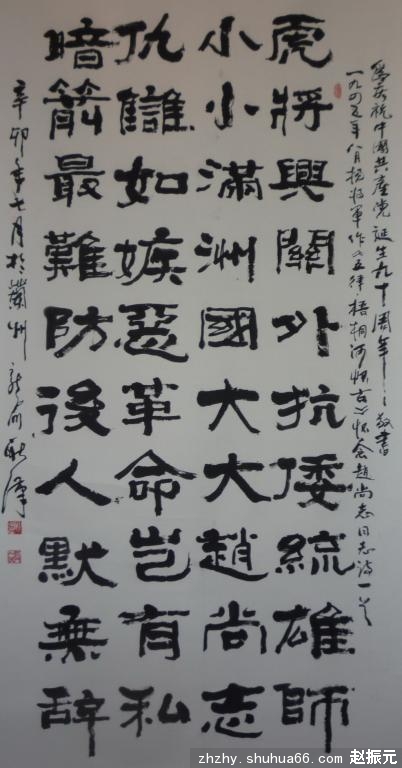 爲慶祝中國共產党誕生九十周年敬書
一九四五年八月楊將軍作《五律·梧桐河怀古》怀念趙尚志同志詩一首
虎將興關外抗倭統雄師
小小滿洲國大大趙尚志
仇讎如嫉惡革命豈有私
暗箭最難防後人默無辭
辛卯年七月於蘭州
zhzhy.shuhua66.com 赵振元